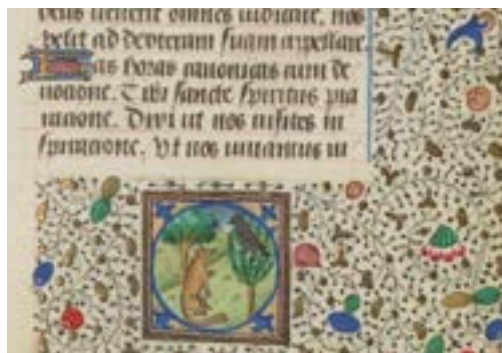 deus uenerit omnes iudicare. nos
uelit ad dexteram suam appellare.
Has horas canonicas cum de
uocione. Tibi sancte spiritus pia
racione. Dixi ut nos uisites in
spiracione. Vt nos uiuamus in